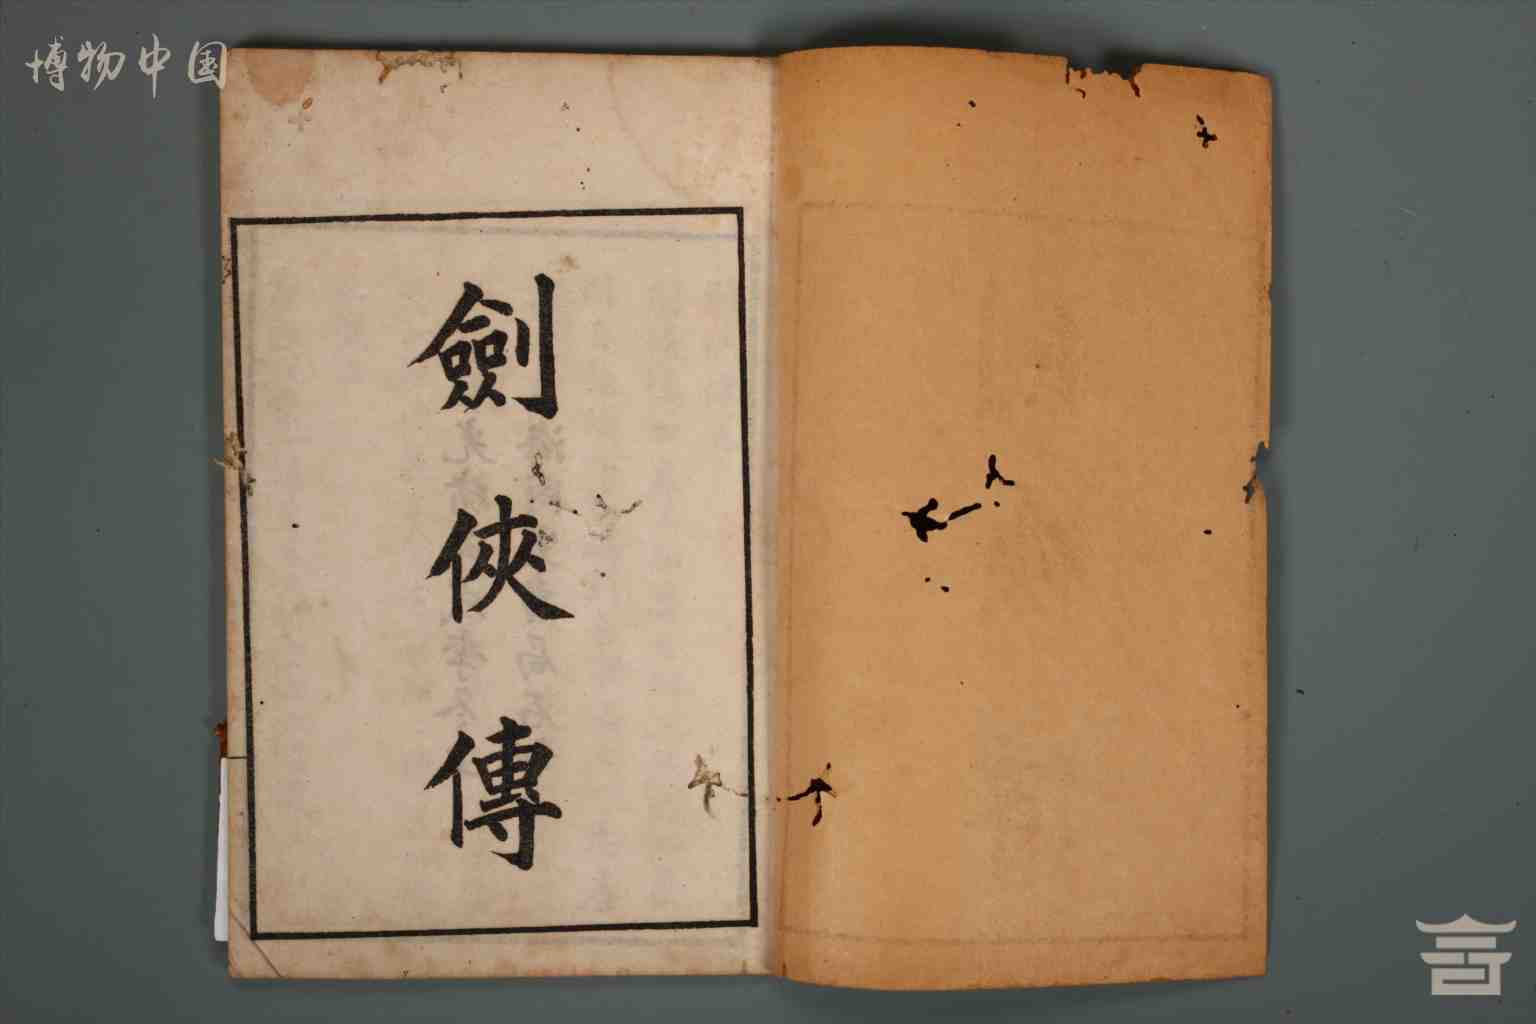 博物中国
劍俠傳